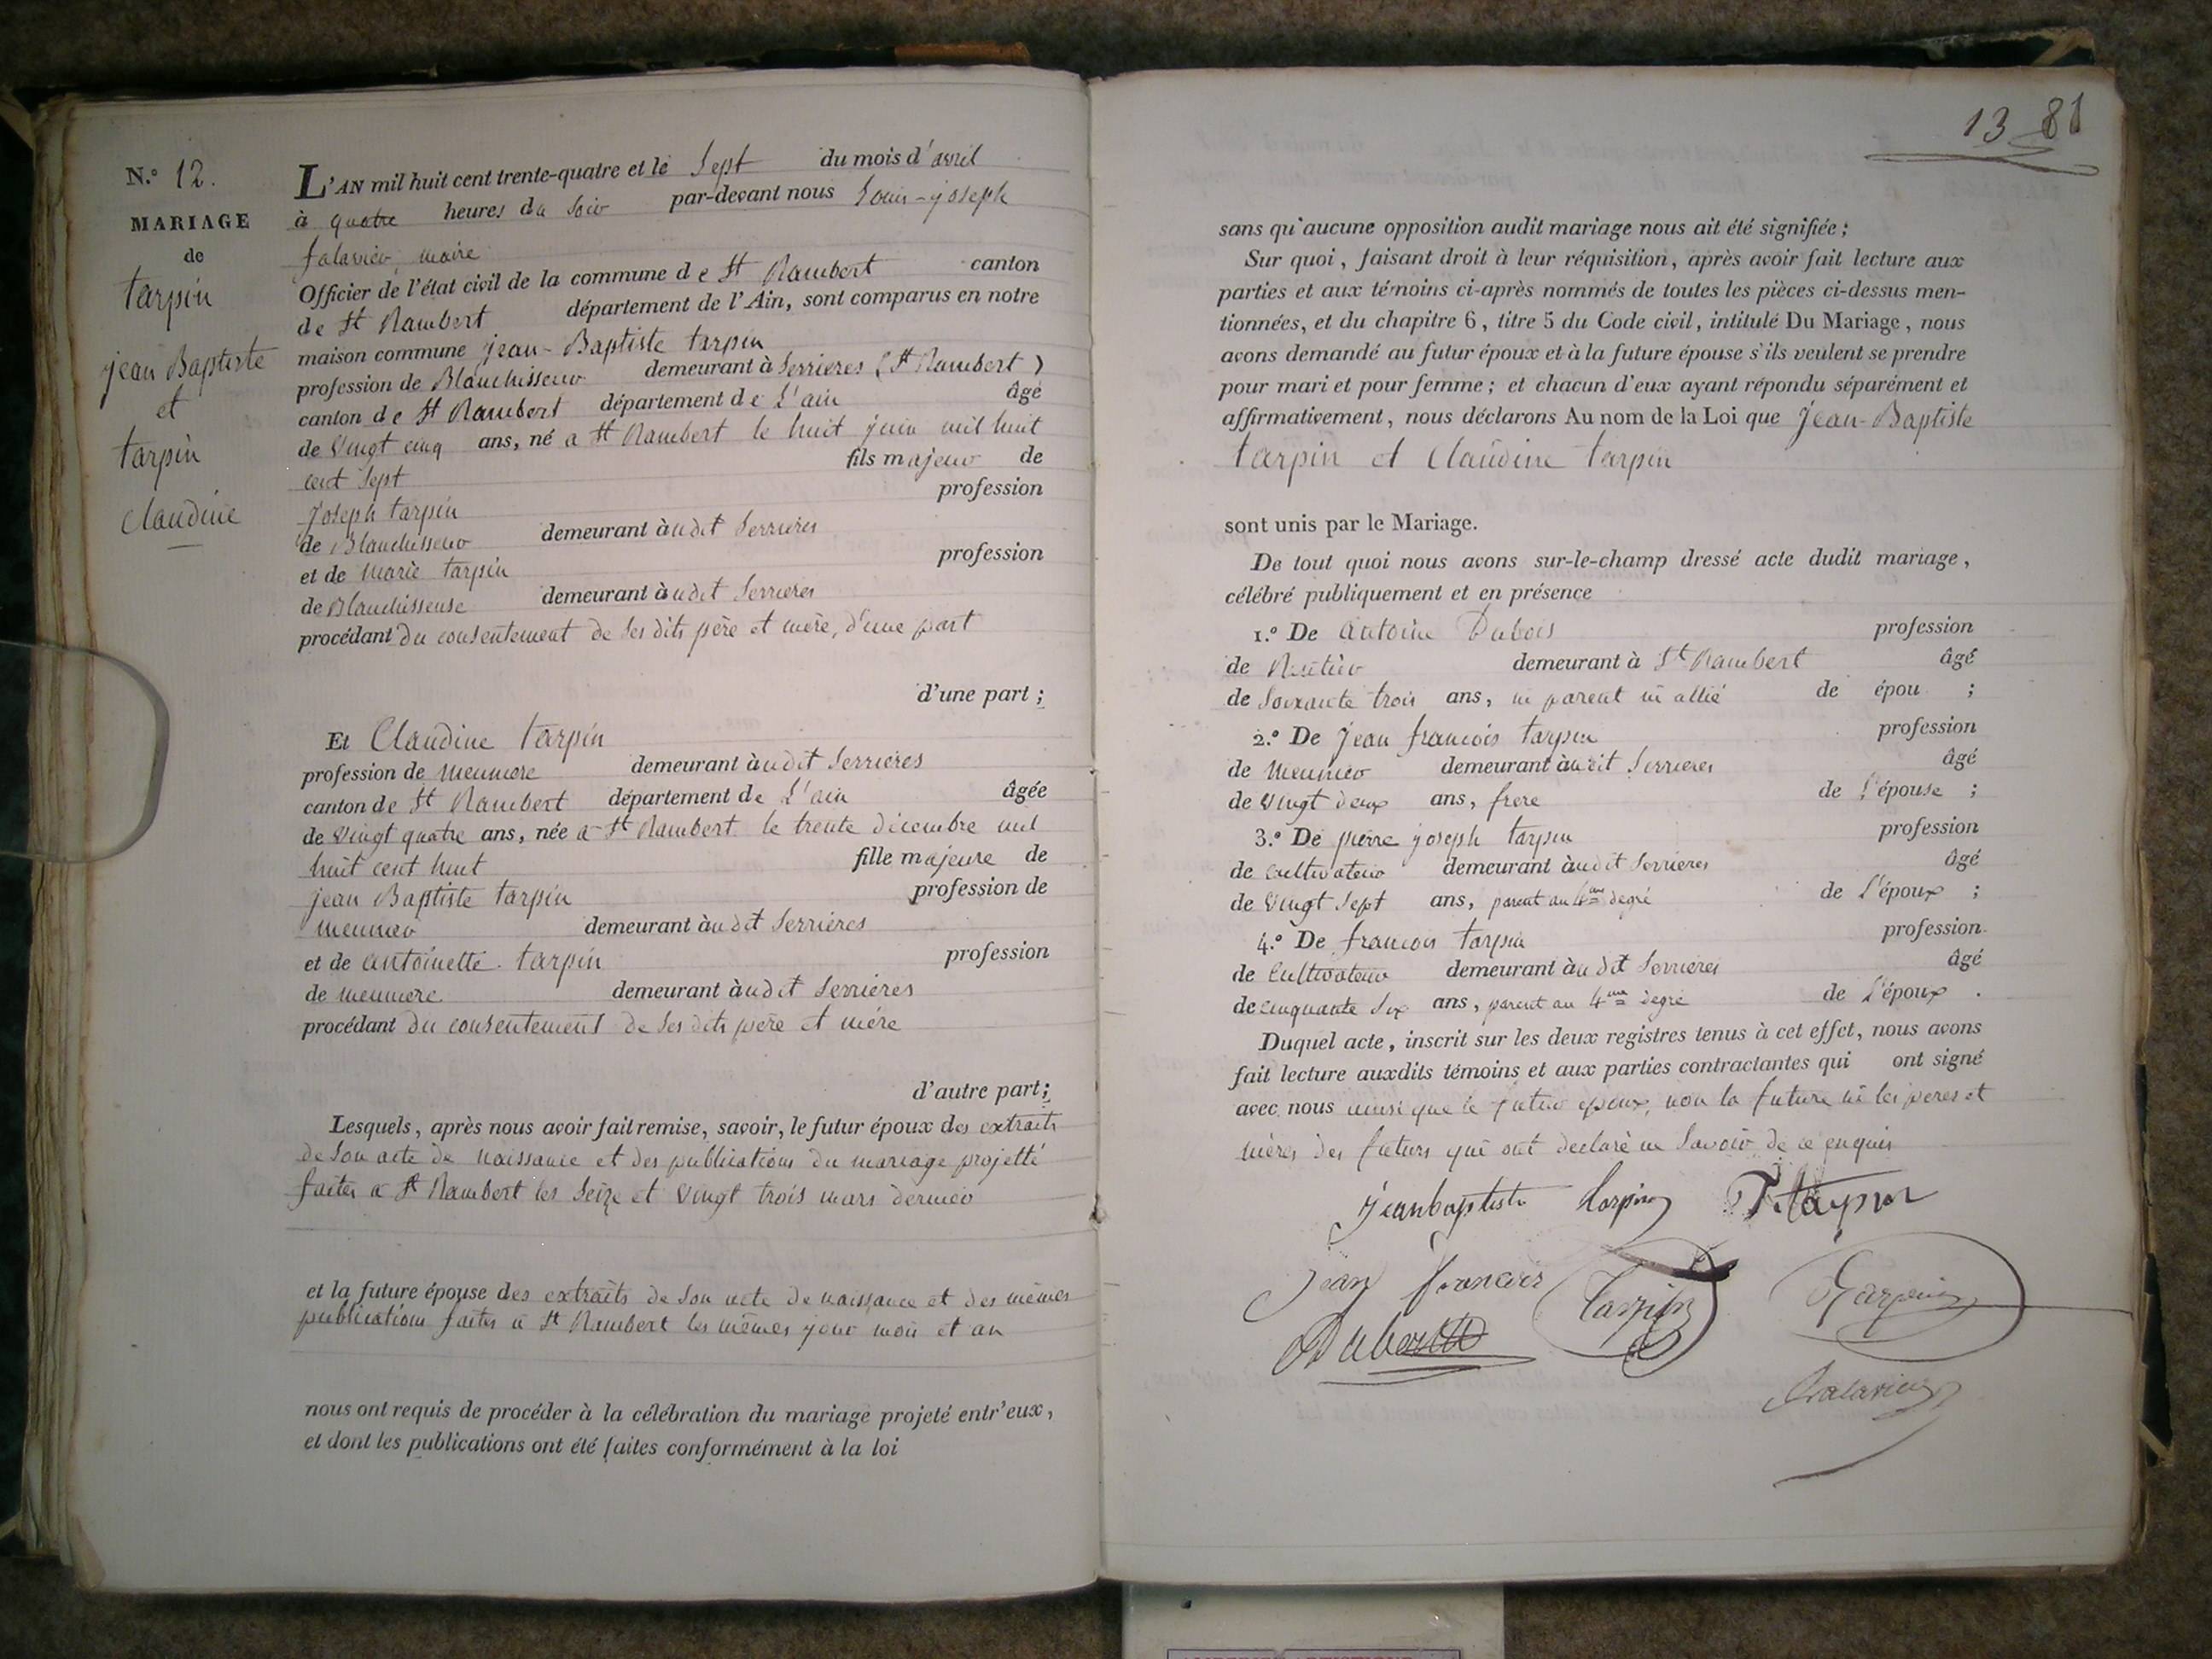 N.o 12.
MARIAGE
de
tarpin
jean Baptiste
et
tarpin
Claudine
L'AN mil huit cent trente-quatre et le Sept du mois d'avril
à quatre heures du Soir par-devant nous Louis-joseph
falavier, maire
Officier de l'état civil de la commune de St Rambert canton
de St Rambert département de l'Ain, sont comparus en notre
maison commune jean-Baptiste tarpin
profession de Blanchisseur demeurant à Serrieres (St Rambert)
canton de St Rambert département de L'ain âgé
de Vingt cinq ans, né a St Rambert le huit juin mil huit
cent Sept fils majeur de
Joseph tarpin profession
de Blanchisseur demeurant àudit Serrieres
et de marie tarpin profession
de Blanchisseuse demeurant àudit Serrieres
procédant du consentement de Ses dits père et mère, d'une part
d'une part ;
Et Claudine tarpin
profession de meuniere demeurant àudit Serrieres
canton de St Rambert département de L'ain âgée
de Vingt quatre ans, née a St Rambert le trente décembre mil
huit cent huit fille majeure de
jean Baptiste tarpin profession de
meunier demeurant àudit Serrières
et de antoinette tarpin profession
de meuniere demeurant àudit Serrières
procédant du consentement de Ses dits père et mére
d'autre part ;
Lesquels, après nous avoir fait remise, savoir, le futur époux des extraits
de Son acte de naissance et des publications du mariage projetté
faites a St Rambert les Seize et Vingt trois mars dernier
et la future épouse des extraits de Son acte de naissance et des mêmes
publications faites a St Rambert les mêmes jour mois et an
nous ont requis de procéder à la célébration du mariage projeté entr'eux,
et dont les publications ont été faites conformément à la loi
13 81
sans qu'aucune opposition audit mariage nous ait été signifiée ;
Sur quoi, faisant droit à leur réquisition, après avoir fait lecture aux
parties et aux témoins ci-après nommés de toutes les pièces ci-dessus men-
tionnées, et du chapitre 6, titre 5 du Code civil, intitulé Du Mariage, nous
avons demandé au futur époux et à la future épouse s'ils veulent se prendre
pour mari et pour femme ; et chacun d'eux ayant répondu séparément et
affirmativement, nous déclarons Au nom de la Loi que Jean-Baptiste
tarpin et Claudine tarpin
sont unis par le Mariage.
De tout quoi nous avons sur-le-champ dressé acte dudit mariage,
célébré publiquement et en présence
1.o De Antoine Dubois profession
de Rentier demeurant à St Rambert âgé
de Soixante trois ans, ni parent ni allié de épou ;
2.o De Jean francois tarpin profession
de Meunier demeurant àudit Serrieres âgé
de Vingt deux ans, frere de L'épouse ;
3.o De pierre joseph tarpin profession
de Cultivateur demeurant àudit Serrieres âgé
de Vingt Sept ans, parent au 4me degré de L'époux ;
4.o De francois tarpin profession
de Cultivateur demeurant àudit Serrieres âgé
de cinquante Six ans, parent au 4me degré de L'époux .
Duquel acte, inscrit sur les deux registres tenus à cet effet, nous avons
fait lecture auxdits témoins et aux parties contractantes qui ont signé
avec nous ainsi que le futur epoux, non la future ni les peres et
mères des futurs qui ont déclaré ne Savoir de ce enquis
Jeanbaptiste tarpin P. tarpin
Jean francois Tarpin Tarpin
Falavier